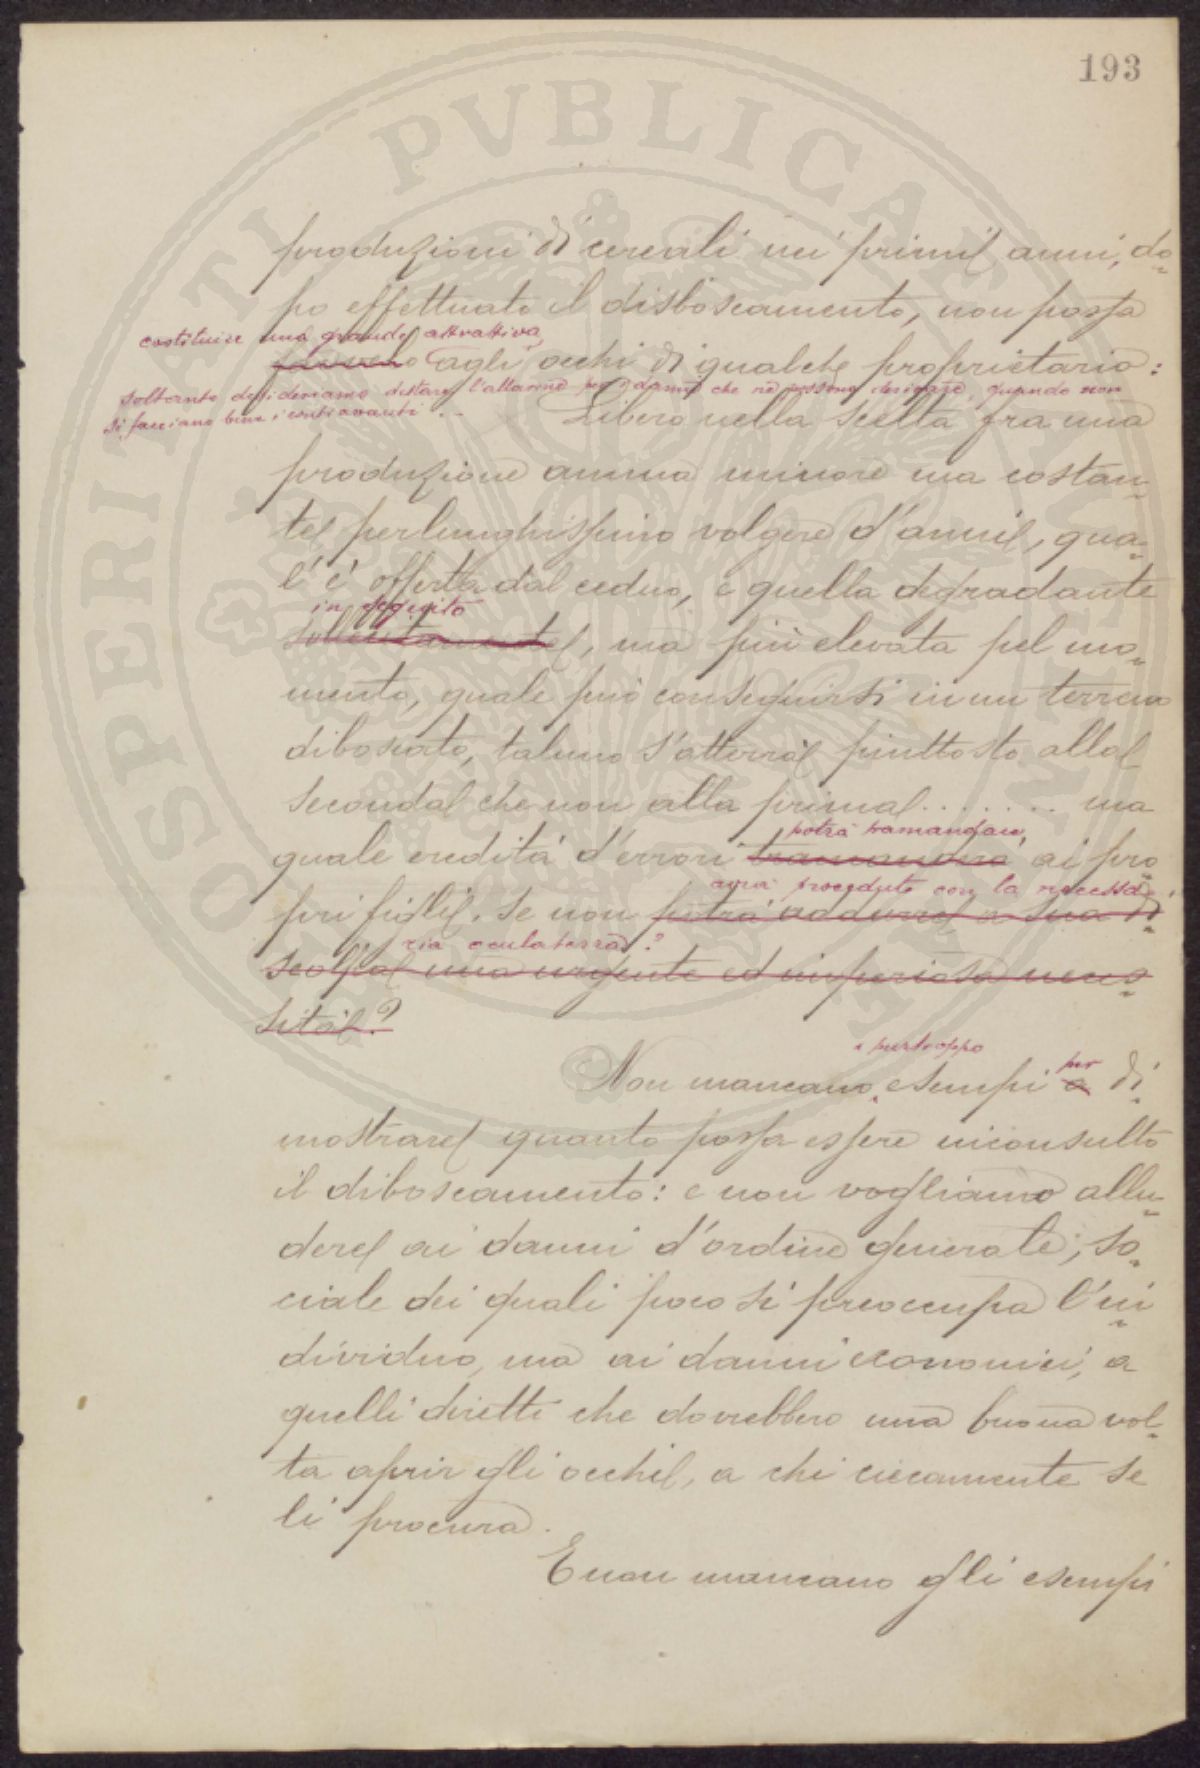 193
produzioni di cereali nei primi anni, do-
po effettuato il disboscamento, non possa
costituire una grande attrattiva
far velo agli occhi di qualche proprietario:
soltanto desideriamo destare l'allarme pei danni che ne possono derivare, quando non
si facciano bene i conti avanti...
Libero nella scelta fra una
produzione annua minore ma costan-
te per lunghissimo volgere d'anni, qua-
l'è offerta dal ceduo, e quella degradante
in seguito
sollecitamente, ma più elevata pel mo-
mento, quale può conseguirsi in un terreno
diboscato, taluno s'atterrà piuttosto alla
seconda che non alla prima....... ma
potrà tramandare
quale eredità d'errori tramanderà ai pro-
avrà proceduto con la necessa-
pri figli, se non potrà addurre a sua di-
ria oculatezza?
scolpa una urgente ed imperiosa neces-
sità?
purtroppo
per
Non mancano esempi a di-
mostrare quanto possa essere inconsulto
il diboscamento: e non vogliamo allu-
dere ai danni d'ordine generale, so-
ciale dei quali poco si preoccupa l'in-
dividuo, ma ai danni economici, a
quelli diretti che dovrebbero una buona vol-
ta aprir gli occhi, a chi ciecamente se
li procura.
E non mancano gli esempi
SOSPERITATI PVBLICAE